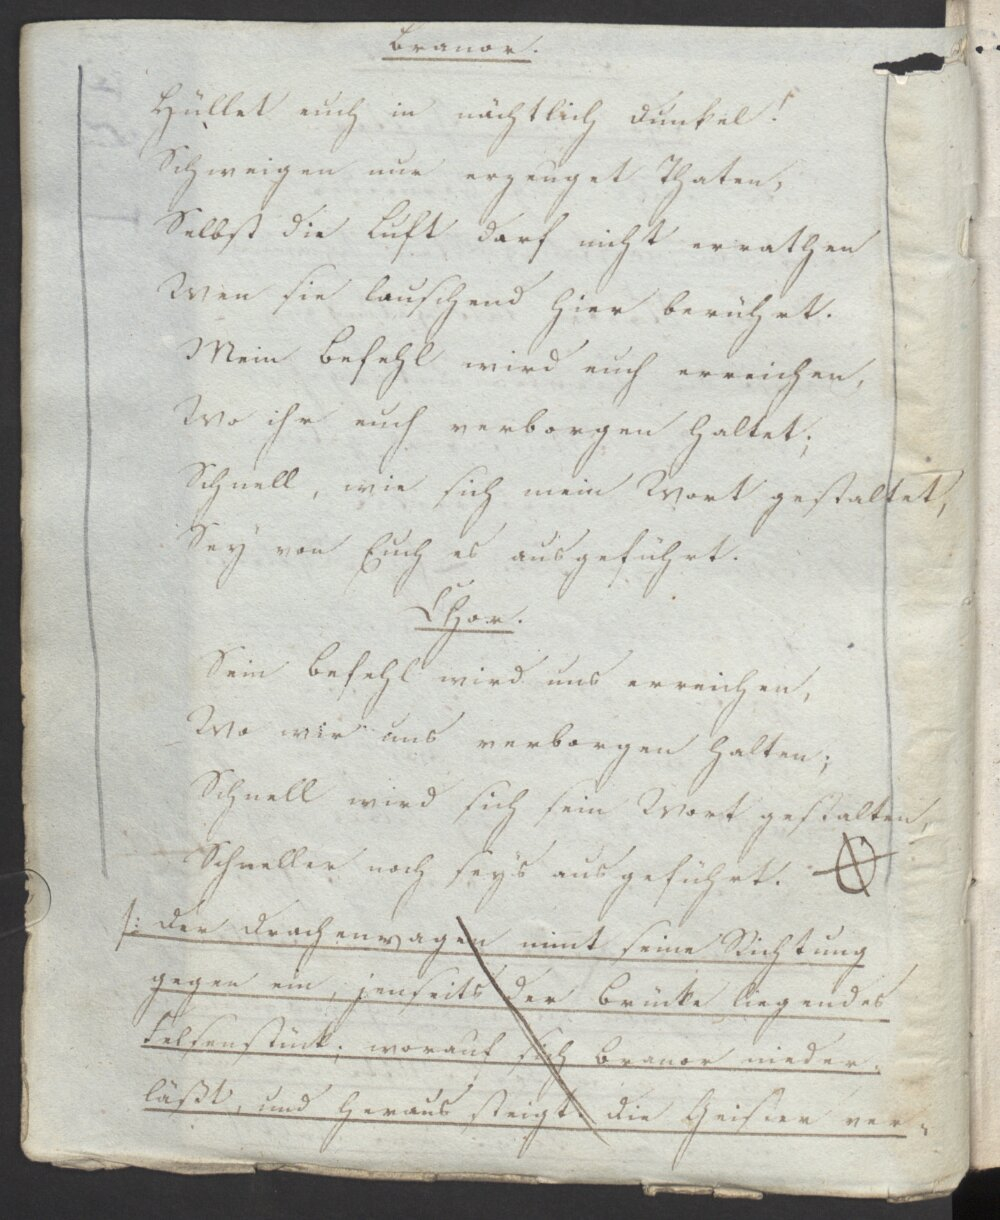 Branor.
Hüllet euch in nächtlich Dunkel!
Schweigen nur erzeuget Thaten,
Selbst die Luft darf nicht errathen
Wen sie lauschend hier berührt.
Mein Befehl wird euch erreichen,
Wo ihr euch verborgen haltet;
Schnell, wie sich mein Wort gestaltet,
Sey von Euch es ausgeführt.
Chor.
Sein Befehl wird uns erreichen,
Wo wir uns verborgen halten;
Schnell wird sich sein Wort gestalten,
Schneller noch seys ausgeführt.
/: Der Drachenwagen nimt seine Richtung
gegen ein, jenseits der Brücke liegendes
Felsenstück, worauf sich Branor nieder-
läßt, und heraus steigt. Die Geister ver-